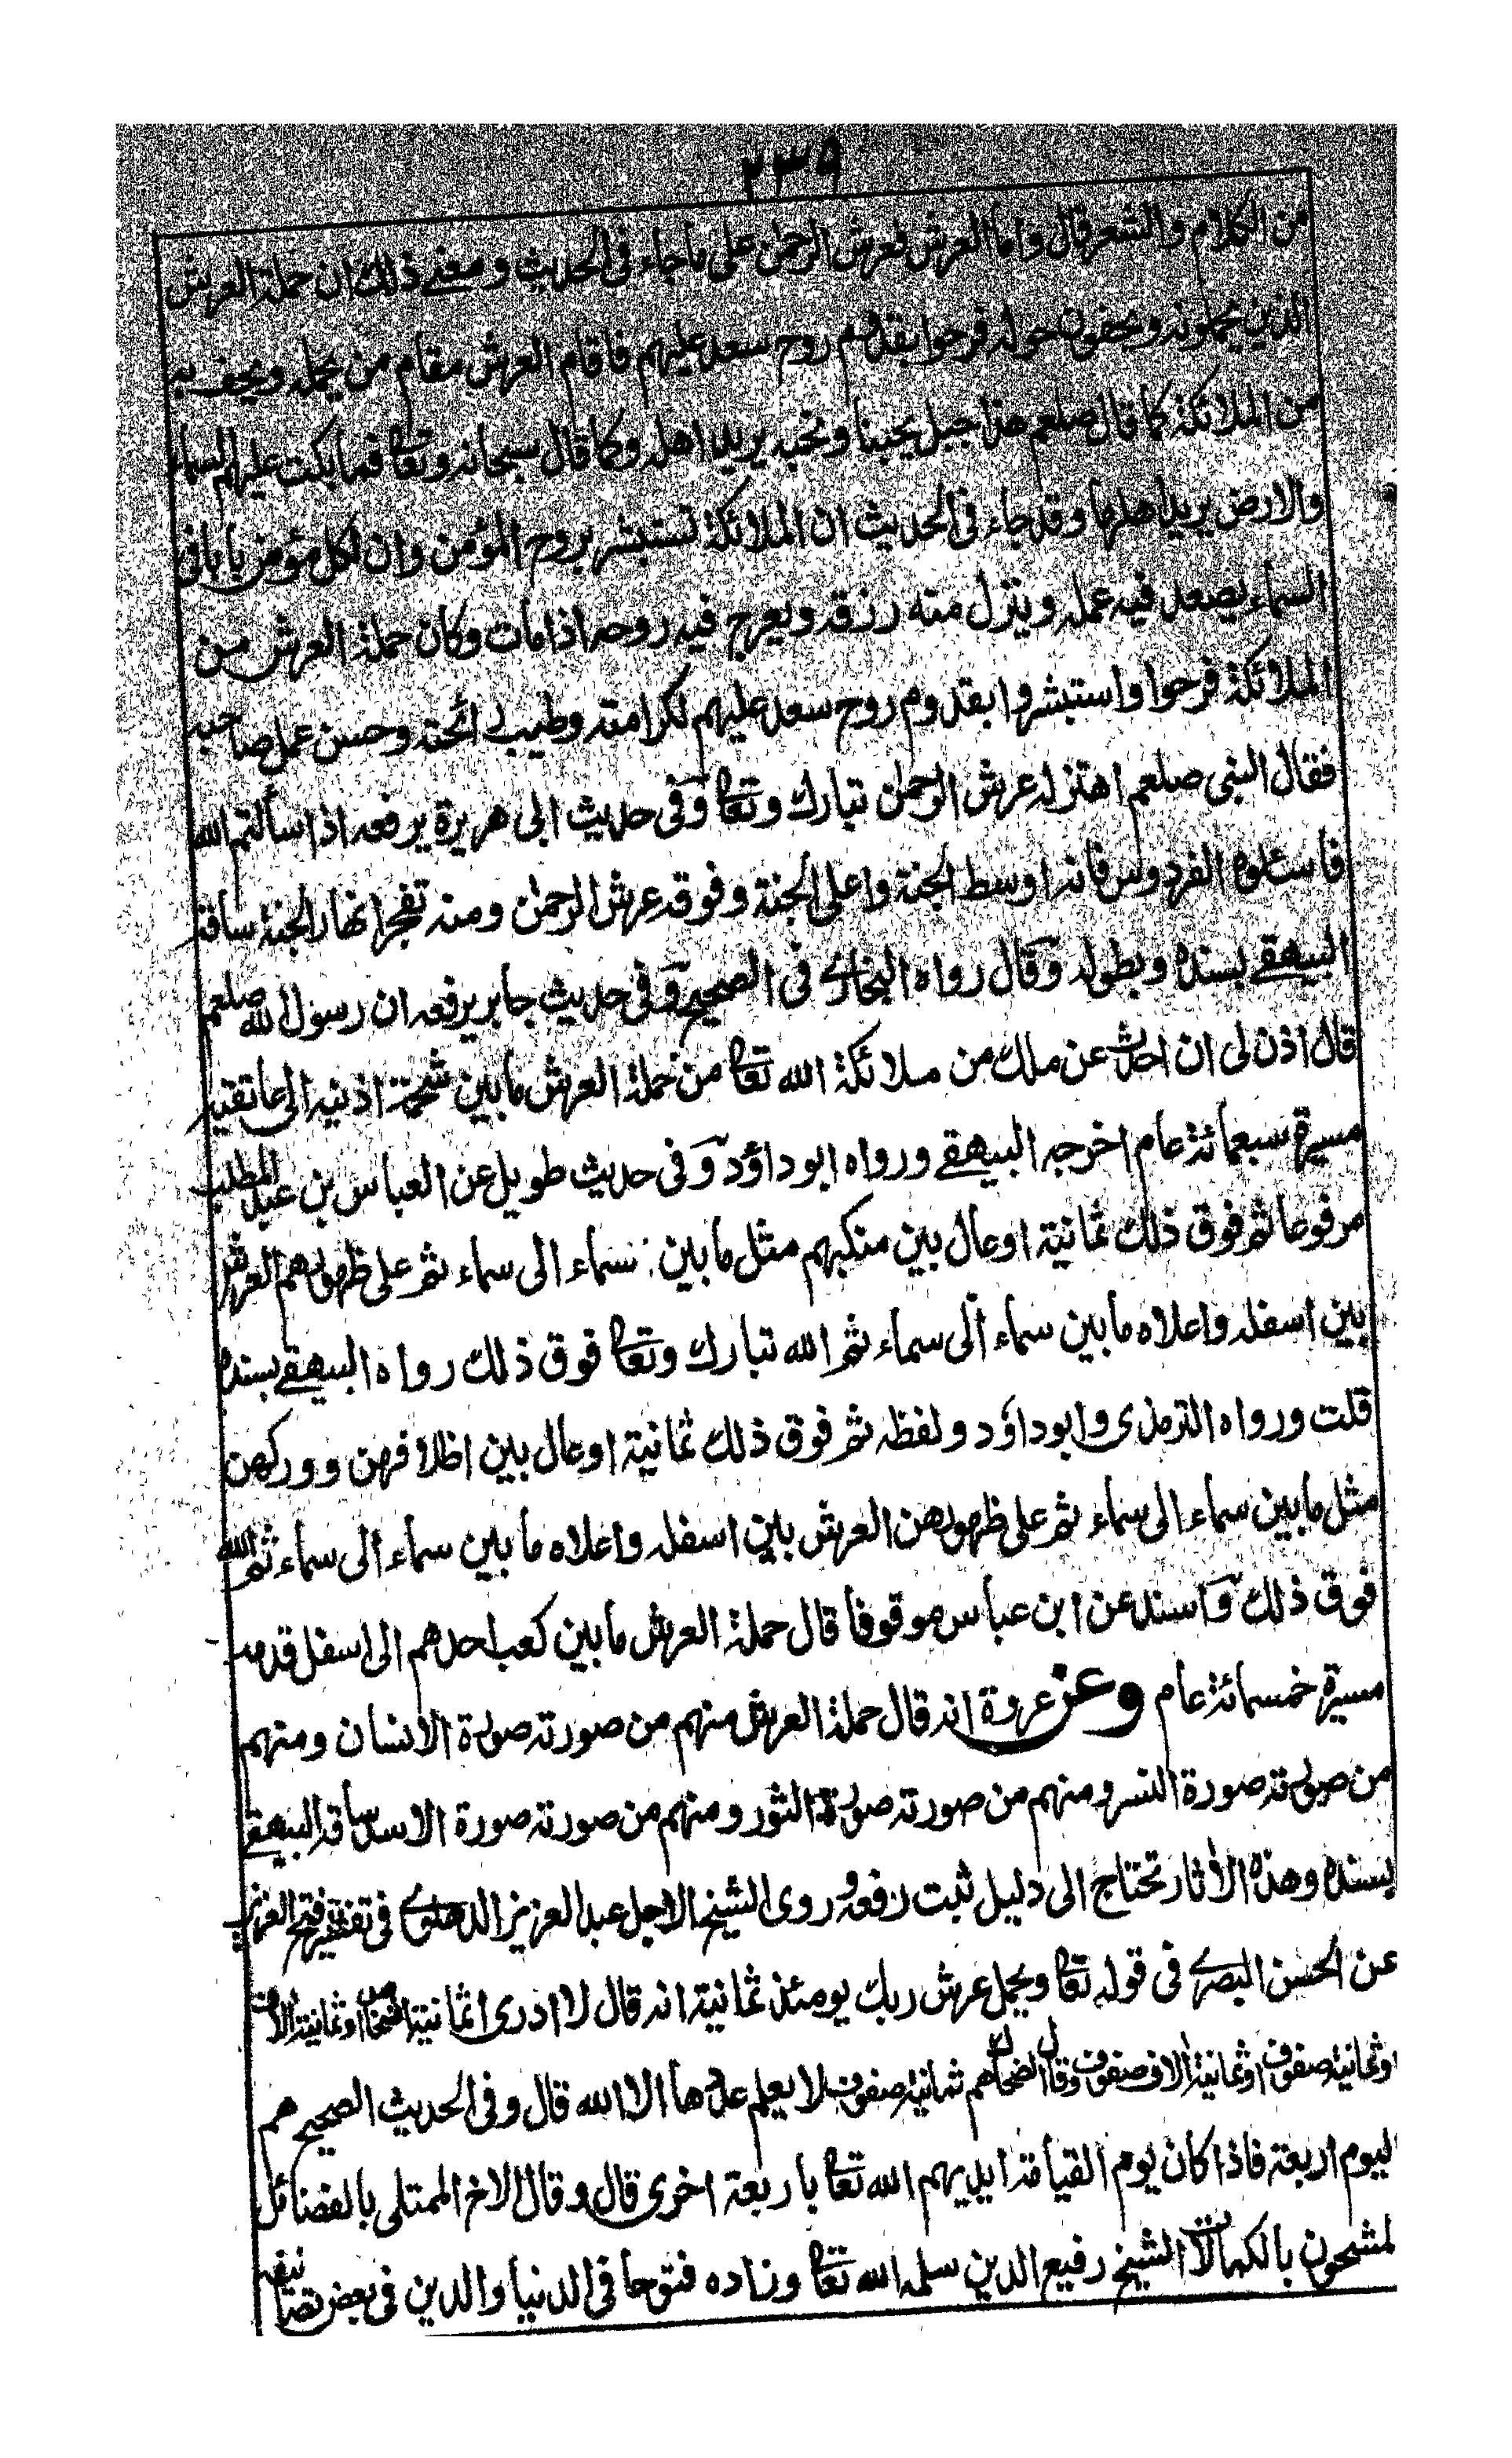 ٢٣٩
من الكلام والشعر قال واما العرش فعرش الرحمن على ما جاء فى الحديث ومعنے ذلك ان حملة العرش
الذين يحملونه ويحفون حوله فرحوا بقدوم روح سعد عليهم فاقام العرش مقام من يحمله ويحف به
من الملائكة كما قال صلعم هذا جبل يحبنا ونحبه يريد اهله وكما قال سبحانه وتعا فما بكت عليهم السماء
والارض يريد اهلها وقد جاء فى الحديث ان الملائكة تستبشر بروح المؤمن وان لكل مؤمن بابا فى
السماء يصعد فيه عمله وينزل منه رزقه ويعرج فيه روحه اذا مات وكان حملة العرش من
الملائكة فرحوا واستبشروا بقدوم روح سعد عليهم لكرامته وطيب رائحته وحسن عمل صاحبه
فقال النبى صلعم اهتز له عرش الرحمن تبارك وتعا وفى حديث ابى هريرة يرفعه اذا سألتم الله
فاسئلوه الفردوس فانه اوسط الجنة واعلى الجنة وفوقه عرش الرحمن ومنه تفجر انهار الجنة ساقه
البيهقے بسنده وبطوله وقال رواه البخارے فى الصحيح وفى حديث جابر يرفعه ان رسول الله صلعم
قال اذن لى ان احدث عن ملك من ملائكة الله تعا من حملة العرش ما بين شحمة اذنيه الى عاتقيه
مسيرة سبعمائة عام اخرجه البيهقے ورواه ابو داؤد وفى حديث طويل عن العباس بن عبد المطلب
مرفوعا ثم فوق ذلك ثمانية اوعال بين منكبهم مثل ما بين سماء الى سماء ثم على ظهورهم العرش
بين اسفله واعلاه ما بين سماء الى سماء ثم الله تبارك وتعا فوق ذلك رواه البيهقے بسنده
قلت ورواه الترمذى وابو داؤد ولفظه ثم فوق ذلك ثمانية اوعال بين اظلافهن ووركهن
مثل ما بين سماء الى سماء ثم على ظهورهن العرش بين اسفله واعلاه ما بين سماء الى سماء ثم الله
فوق ذلك واسند عن ابن عباس موقوفا قال حملة العرش ما بين كعب احدهم الى اسفل قدمه
مسيرة خمسمائة عام وعن عروة انه قال حملة العرش منهم من صورته صورة الانسان ومنهم
من صورته صورة النسر ومنهم من صورته صورة الثور ومنهم من صورته صورة الاسد ساقه البيهقے
بسنده وهذه الأثار تحتاج الى دليل ثبت رفعه وروى الشيخ الاجل عبد العزيز الدهلوے فى تفسيره فتح العزيز
عن الحسن البصرے فى قوله تعا ويحمل عرش ربك يومئذ ثمانية انه قال لا ادرى اثمانية اشخاص او ثمانية الاف
او ثمانية صفوف او ثمانية الاف صفوف وقال الضحاك هم ثمانية صفوف لا يعلم عددها الا الله قال وفى الحديث الصحيح هم
اليوم اربعة فاذا كان يوم القيامة ايديهم الله تعا باربعة اخرى قال وقال الاخ الممتلى بالفضائل
لمشحون بالكمالات الشيخ رفيع الدين سلمه الله تعا وزاده فتوحا فى الدنيا والدين فى بعض تصانيفه